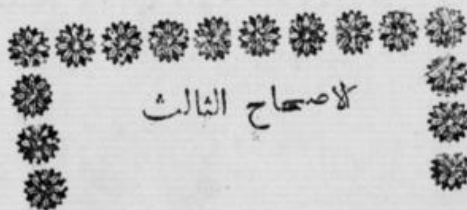 لاصحاح الثالث